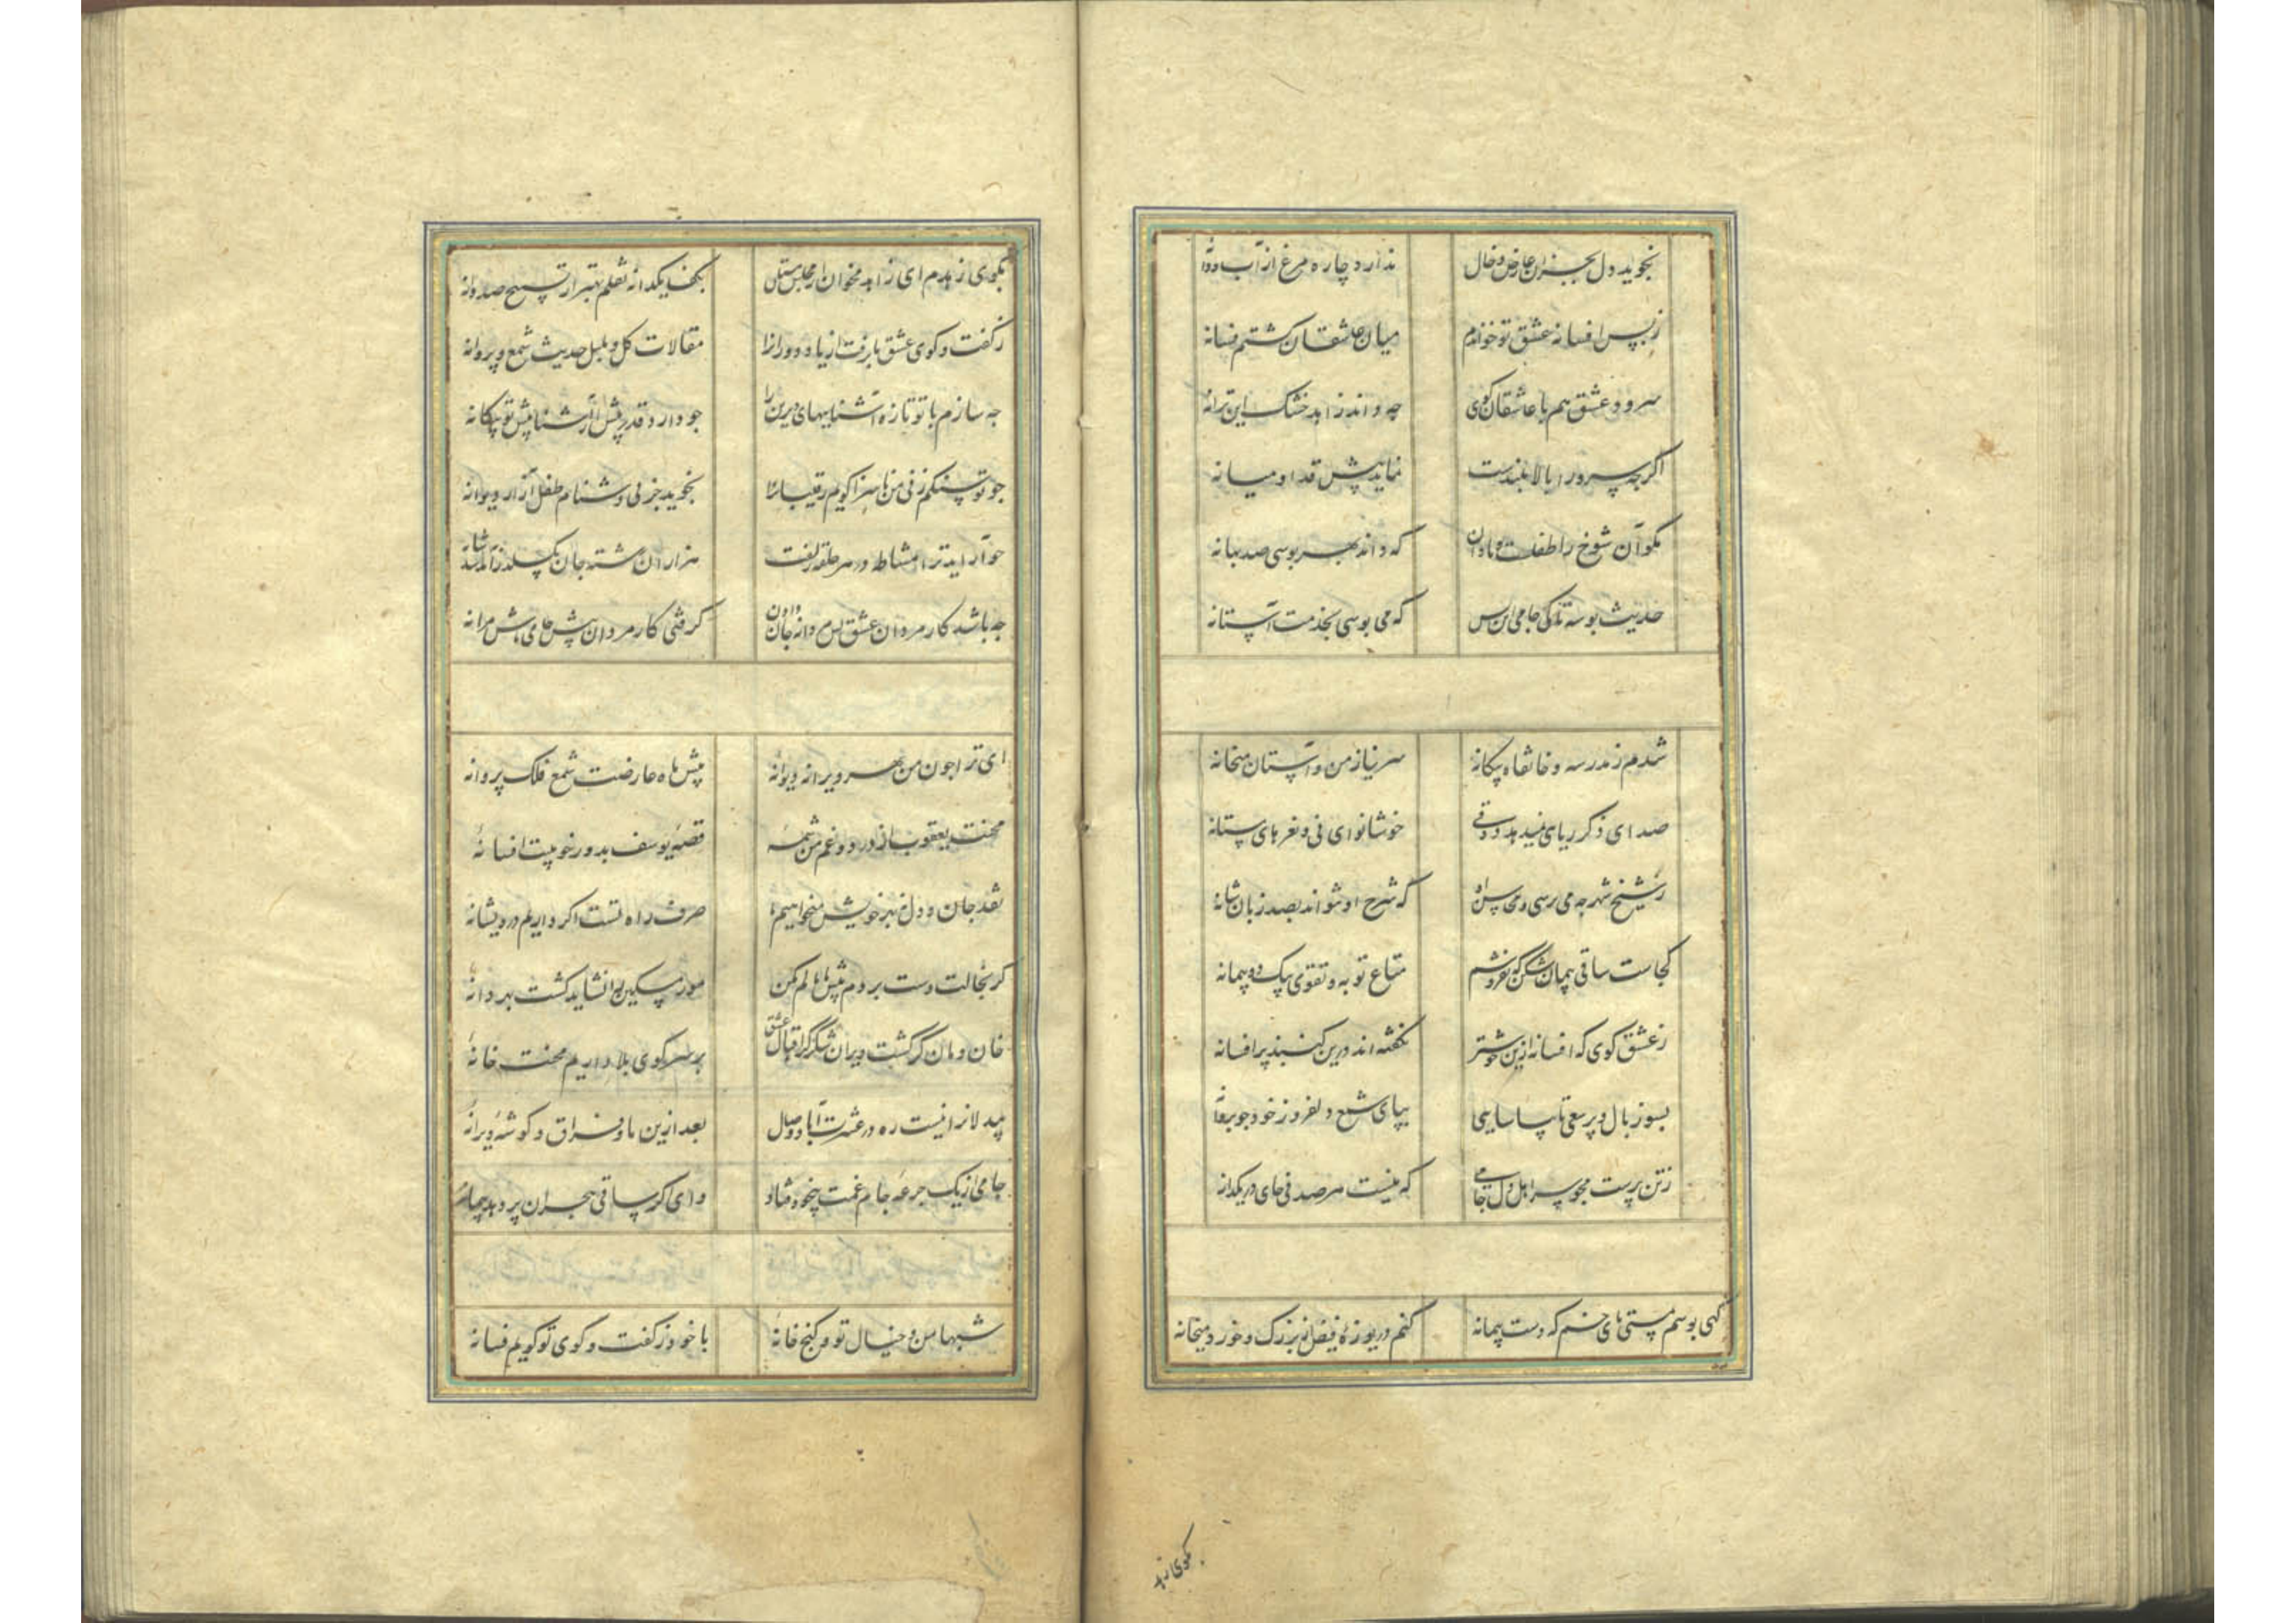 نجوید دل بجز آن عارض و خال ندارد چاره مرغ از آب و دانه
ز بس افسانه عشق تو خواندم میان عاشقان گشتم فسانه
سرود عشق هم با عاشقان گوی چه داند زاهد خشک این ترانه
اگرچه سرو را بالا بلندست نماید پیش قد او میانه
مگو آن شوخ را طفلست و نادان که داند بهر بوسی صد بهانه
حدیث بوسه تا کی جامی این بس که می بوسی بخدمت آستانه
شدم ز مدرسه و خانقاه بیکانه سر نیاز من و آستان میخانه
صدای ذکر ریایی نمیدهد ذوقی خوشا نوای نی و نعرهای مستانه
ز شیخ شهر چه می پرسی و محاسن او که شرح او نتواند بصد زبان شانه
کجاست ساقی پیمان شکن که بفروشم متاع توبه و تقوی بیک دو پیمانه
ز عشق کوی که افسانه ازین خوشتر نگفته اند درین کنبد پر افسانه
بسوز بال و پر سعی تا بیاسایی بپای شمع دلفروز خود چو پروانه
ز تن پرست مجو سر اهل دل جامی که نیست هر صدفی جای در یکدانه
کهی بوسم ز مستی پای خم که دست پیمانه کنم دریوزهٔ فیض از بزرک و خورد میخانه
بکوی زهدم ای زاهد مخوان از مجلس مستان بکف یکدانه نقلم بهتر از تسبیح صد دانه
ز کفت و کوی عشق ما برفت از یاد دوران را مقالات کل و بلبل حدیث شمع و پروانه
چه سازم با تو تازه آشناییهای دیرین را چو دارد قدر پیش از آشنا پیش تو بیکانه
چو تو سنکم زنی من ناسزا کویم رقیبان را نجوید جز پی دشنام طفل آزار دیوانه
چو آراید ترا مشاطه در هر حلقه زلفت هزاران رشته جان بکسلد ز آمد شد شانه
چه باشد کار مردان عشق پس مردانه جان دادن کرفتی کار مردان پیش جامی باش مردانه
ای ترا چون من بهر ویرانه دیوانهٔ پیش ماه عارضت شمع فلک پروانهٔ
محنت یعقوب از درد و غم من شمهٔ قصهٔ یوسف بدور خوبیت افسانهٔ
نقد جان و دل نه بهر خویش میخواهیم ما صرف راه تست اکر داریم درویشانهٔ
کر بخالت دست بردم پیش پامالم مکن مور مسکین را نشاید کشت بهر دانهٔ
خان و مان کر کشت ویران شکر کز اقبال عشق بر سر کوی بلا داریم محنت خانهٔ
بیدلان را نیست ره در عشرت آباد وصال بعد ازین ما و فراق و کوشهٔ ویرانهٔ
جامی از یک جرعهٔ جام غمت بیخود فتاد وای اکر ساقی هجران پر دهد پیمانهٔ
شبها من و خیال تو و کنج خانهٔ با خود ز کفت و کوی تو کویم فسانهٔ
بکوی زهد